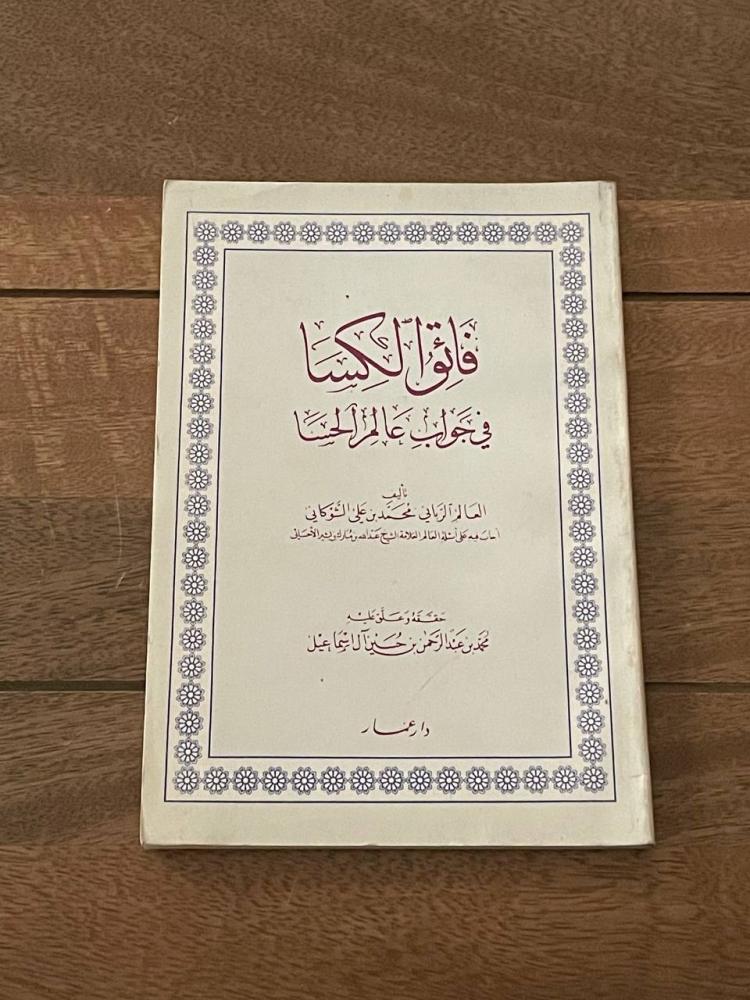 فَائِقُ الكِسَا
في جَوَابِ عَالِمِ الحَسَا
تأليف
العالم الرباني محمد بن علي الشوكاني
أجاب فيه على أسئلة العالم العلامة الشيخ عبدالله بن مبارك بن بشير الأحسائي
حققه وعلق عليه
محمد بن عبد الرحمن بن حسين آل اسماعيل
دار عمار